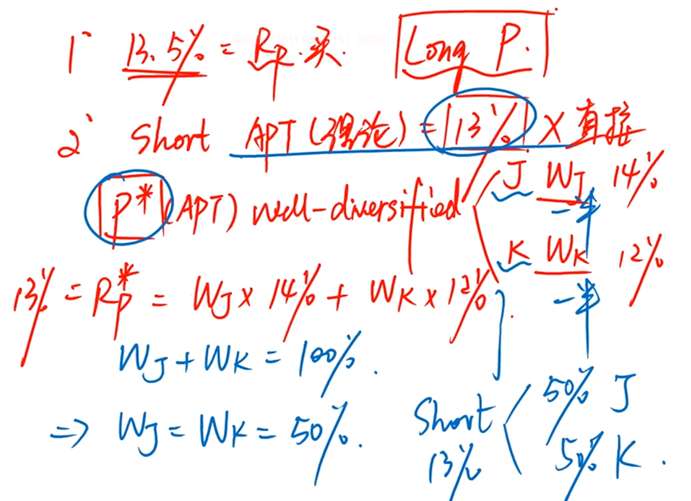 1` 13.5% = Rp.买. Long P.
2` Short APT(理论) = 13% X 直接
P* (APT) well-diversified J WJ 14%
一半
K WK 12%
一半
13% = Rp* = WJ x 14% + WK x 12%.
WJ + WK = 100%.
=> WJ = WK = 50%. Short 50% J
13% 50% K.